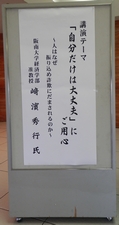 講演テーマ
「自分だけは大丈夫」にご用心
~人はなぜ
振り込め詐欺にだまされるのか~
阪南大学経済学部
准教授
﨑濱秀行氏